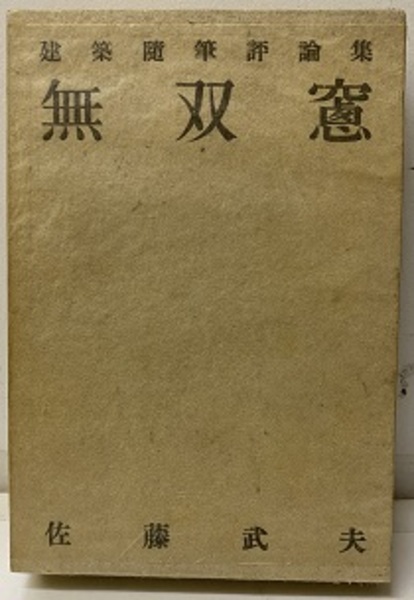 建築隨筆評論集
無双窻
佐藤武夫